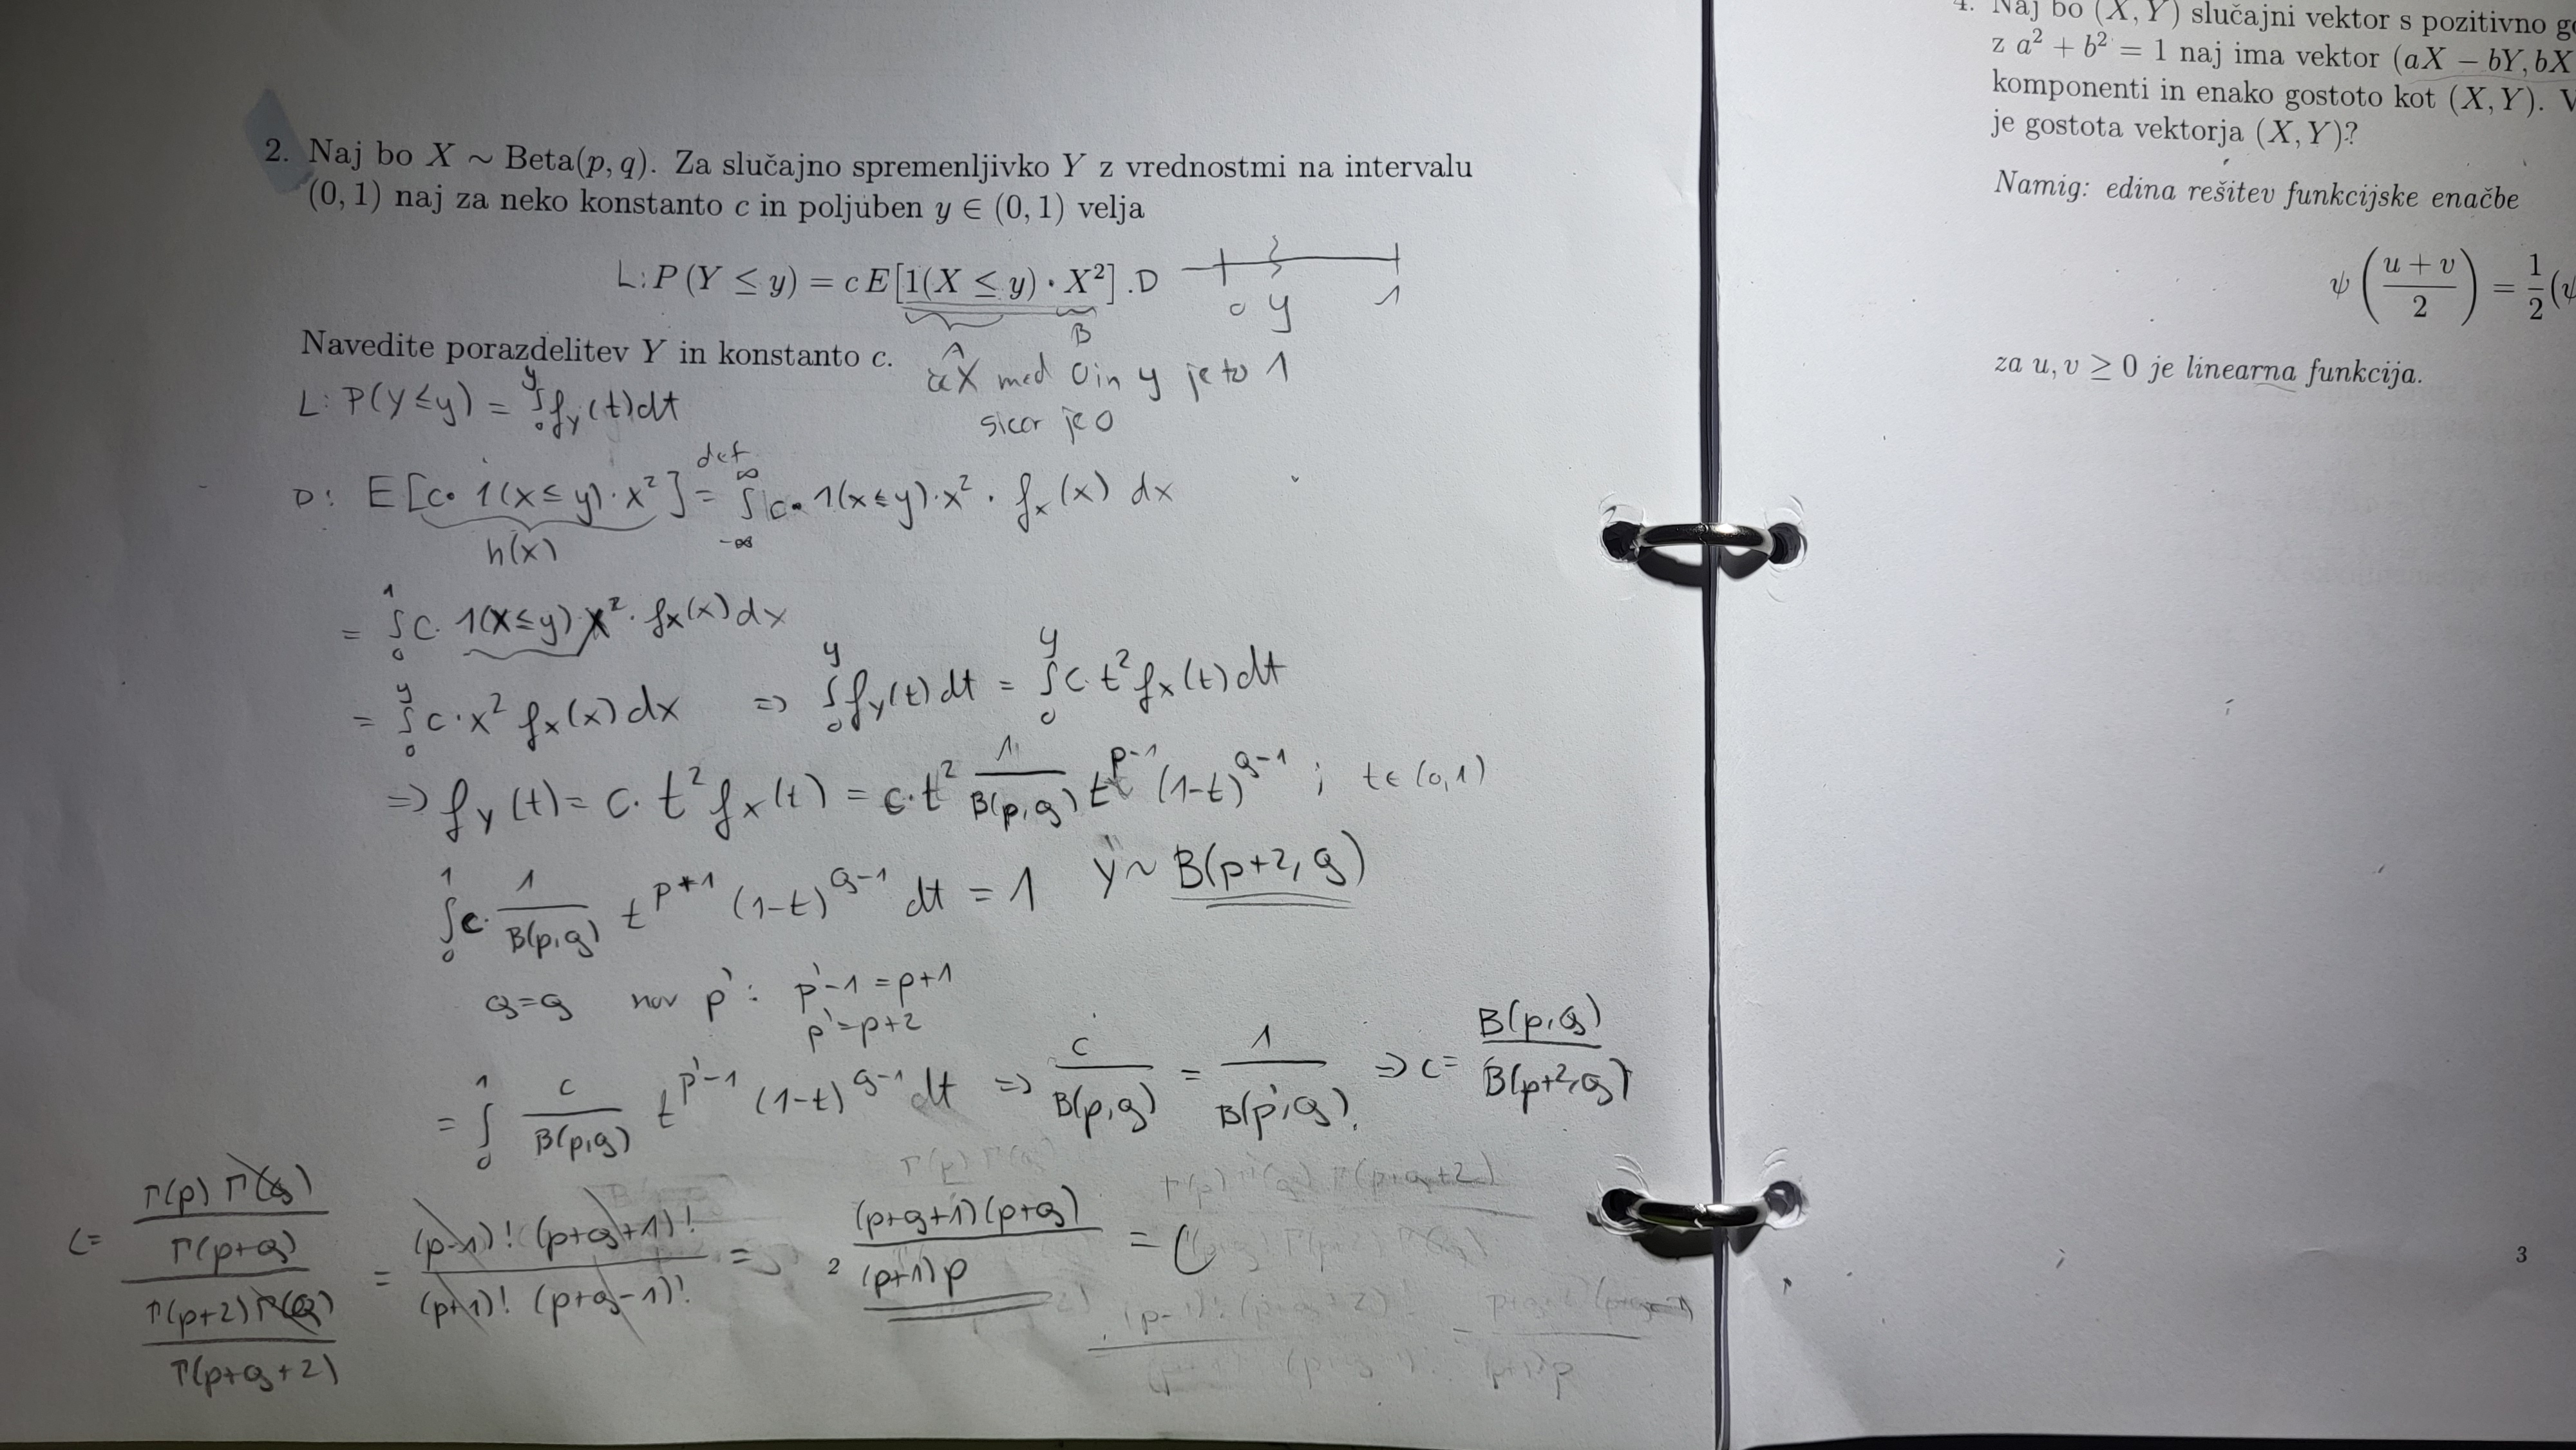 2. Naj bo X ~ Beta(p, q). Za slučajno spremenljivko Y z vrednostmi na intervalu
(0, 1) naj za neko konstanto c in poljuben y ∈ (0, 1) velja
L: P(Y ≤ y) = cE[1(X ≤ y) · X²]. D
0 y 1
B
Navedite porazdelitev Y in konstanto c.
če X med 0 in y je to 1
sicer je 0
L: P(Y ≤ y) = ∫₀^y f_Y(t)dt
D: E[c · 1(X ≤ y) · x²] = def ∫_{-∞}^{∞} c · 1(x ≤ y) · x² · f_X(x) dx
h(x)
= ∫₀^1 c · 1(x ≤ y) · x² · f_X(x) dx
= ∫₀^y c · x² f_X(x) dx ⇒ ∫₀^y f_Y(t) dt = ∫₀^y c · t² f_X(t) dt
⇒ f_Y(t) = c · t² f_X(t) = c · t² 1/B(p,q) t^{p-1} (1-t)^{q-1} ; t ∈ (0,1)
∫₀^1 c · 1/B(p,q) t^{p+1} (1-t)^{q-1} dt = 1 Y ~ B(p+2, q)
q = q nov p' : p'-1 = p+1
p' = p+2
= ∫₀^1 c/B(p,q) t^{p'-1} (1-t)^{q-1} dt ⇒ c/B(p,q) = 1/B(p',q) ⇒ c = B(p,q)/B(p+2,q)
c = (Γ(p) Γ(q) / Γ(p+q)) / (Γ(p+2) Γ(q) / Γ(p+q+2)) = (p-1)! (p+q+1)! / (p+1)! (p+q-1)! = (p+q+1)(p+q) / (p+1)p = c
4. Naj bo (X, Y) slučajni vektor s pozitivno
z a² + b² = 1 naj ima vektor (aX − bY, bX
komponenti in enako gostoto kot (X, Y).
je gostota vektorja (X, Y)?
Namig: edina rešitev funkcijske enačbe
ψ((u + v)/2) = 1/2 (ψ
za u, v ≥ 0 je linearna funkcija.
3